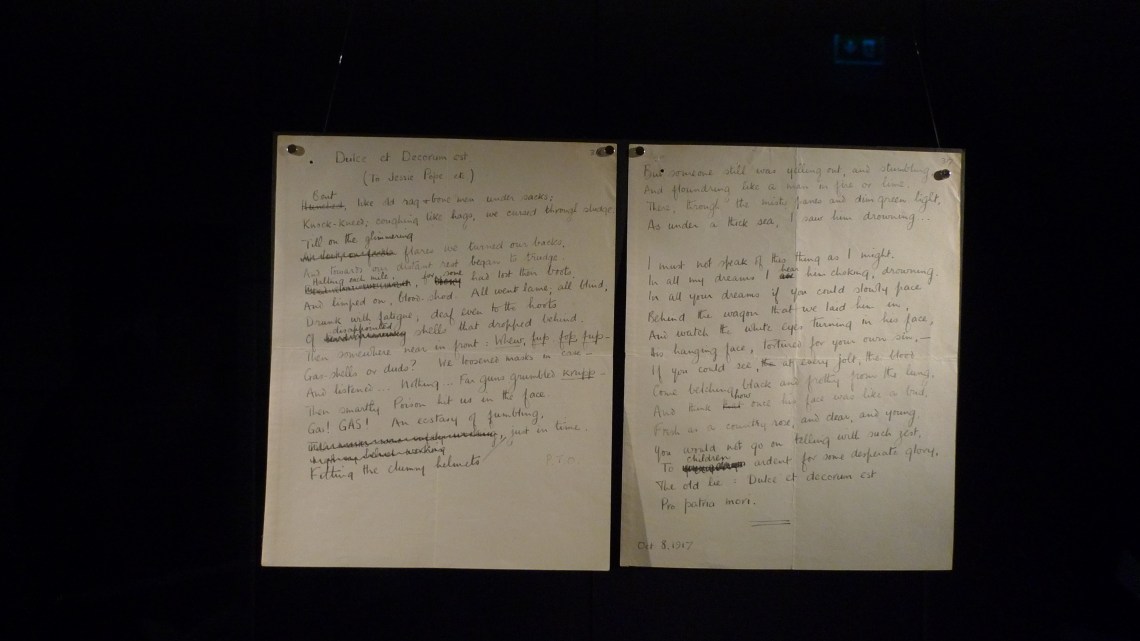 Dulce et Decorum est
(To Jessie Pope etc)
Bent
like old rag + bone men under sacks;
Knock-kneed; coughing like hags, we cursed through sludge,
Till on the glimmering
flares we turned our backs,
And towards our distant rest began to trudge.
Halting each mile, for some
had lost their boots,
And limped on, blood-shod. All went lame; all blind;
Drunk with fatigue; deaf even to the hoots
disappointed
Of shells that dropped behind.
Then somewhere near in front: Whew, fup, fop, fup –
Gas-shells or duds? We loosened masks in case –
And listened ... Nothing ... Far guns grumbled krupp –
Then smartly Poison hit us in the face.
Gas! GAS! An ecstasy of fumbling,
just in time.
Fitting the clumsy helmets
P.T.O.
But someone still was yelling out, and stumbling
And floundring like a man in fire or lime.
There, through the misty panes and dim green light,
As under a thick sea, I saw him drowning ..
I must not speak of this thing as I might.
hear
In all my dreams I him choking, drowning.
In all your dreams if you could slowly pace
Behind the wagon that we laid him in,
And watch the white eyes turning in his face,
His hanging face, tortured for your own sin, –
If you could see, at every jolt, the blood
Come belching black and frothy from the lung,
how
And think once his face was like a bud,
Fresh as a country rose, and clear, and young,
You would not go on telling with such zest,
children
To ardent for some desperate glory,
The old lie: Dulce et decorum est
Pro patria mori.
Oct 8. 1917